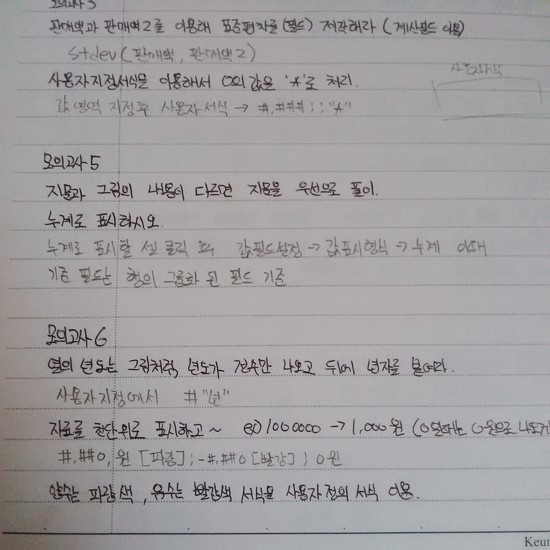 모의고사 3
판매액과 판매액2를 이용해 표준편차를 (필드) 저작해라 (계산필드 이용)
stdev(판매액, 판매액2)
사용자지정서식을 이용해서 0의값을 "*"로 처리.
값영역 지정후 사용자 서식 → #,###;;"*"
모의고사 5
지문과 그림의 내용이 다르면 지문을 우선으로 풀이.
누계로 표시하시오.
누계로 표시할 셀 클릭 후 값필드설정 → 값표시형식 → 누계
기준 필드는 행의 그룹화 된 필드 기준
모의고사 6
열의 년도는 그림처럼, 년도가 전수만 나오고 뒤에 년자를 붙여라.
사용자지정에서 #"년"
자료를 천단위로 표시하고 ~ ex) 1000000 → 1,000원 (0일때는 0원으로 나오게
#,##0,원 [파랑];-#,##0 [빨강]; 0원
양수는 파랑색, 음수는 빨강색 서식을 사용자정의 서식 이용.
Keun